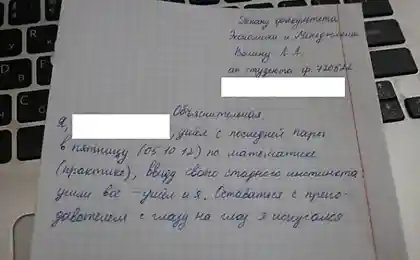 Декану факультета
Экономики и Менеджмента
В. А.
от студента гр.
Объяснительная
Я, , ушёл с последней пары
в пятницу (05.10.12) по математике
(практике), ввиду своего стадного инстинкта:
ушли все – ушёл и я. Оставаться с препо-
давателем с глазу на глаз я испугался